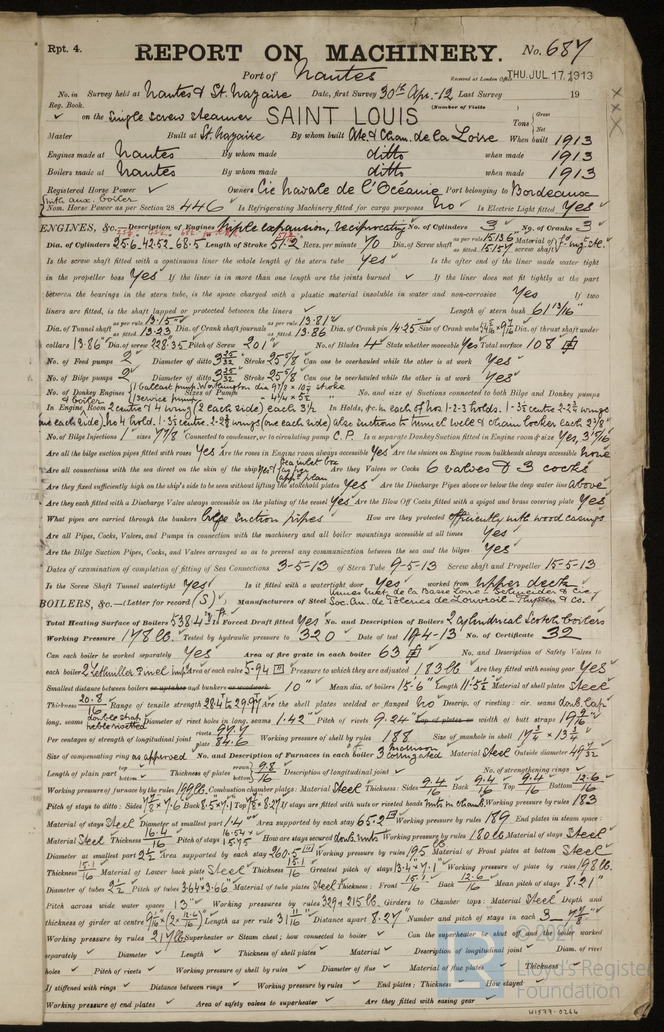 Rpt. 4. REPORT ON MACHINERY. No. 687
Port of Nantes Received at London Office THU. JUL. 17. 1913
No. in Survey held at Nantes & St. Nazaire Date, first Survey 30th Apr. -12 Last Survey 19
Reg. Book. (Number of Visits
✓ on the Single screw steamer SAINT LOUIS Tons { Gross Net
Master Built at St. Nazaire By whom built Ate. & Chan. de la Loire When built 1913
Engines made at Nantes By whom made ditto when made 1913
Boilers made at Nantes By whom made ditto when made 1913
Registered Horse Power ✓ Owners Cie Navale de l'Océanie Port belonging to Bordeaux
with aux. boiler
Nom. Horse Power as per Section 28 446 ✓ Is Refrigerating Machinery fitted for cargo purposes No ✓ Is Electric Light fitted Yes ✓
ENGINES, &c.—Description of Engines Triple expansion, reciprocating No. of Cylinders 3 No. of Cranks 3
Dia. of Cylinders 25.6. 42.52. 68.5 Length of Stroke Revs. per minute 70 Dia. of Screw shaft as per rule as fitted Material of screw shaft
Is the screw shaft fitted with a continuous liner the whole length of the stern tube Yes ✓ Is the after end of the liner made water tight
in the propeller boss Yes ✓ If the liner is in more than one length are the joints burned ✓ If the liner does not fit tightly at the part
between the bearings in the stern tube, is the space charged with a plastic material insoluble in water and non-corrosive Yes If two
liners are fitted, is the shaft lapped or protected between the liners ✓ Length of stern bush 61 13/16"
Dia. of Tunnel shaft as per rule 13.15" as fitted 13.23 Dia. of Crank shaft journals as per rule 13.81" as fitted 13.86 Dia. of Crank pin 14.25 Size of Crank webs Dia. of thrust shaft under
collars 13.86" Dia. of screw 228.35 Pitch of Screw 201" No. of Blades 4 State whether moveable Yes Total surface 108
No. of Feed pumps 2 Diameter of ditto 3 25/32 Stroke 25 5/8 Can one be overhauled while the other is at work Yes
No. of Bilge pumps 2 Diameter of ditto 3 25/32 Stroke 25 5/8 Can one be overhauled while the other is at work Yes
No. of Donkey Engines Sizes of Pumps No. and size of Suctions connected to both Bilge and Donkey pumps
In Engine Room 2 centre & 4 wing (2 each side) each 3½ In Holds, &c. in each of Nos 1-2-3 holds. 1-3½ centre 2-2¾ wings
(one each side). No 4 hold. 1-3½ centre. 2-2¾ wings (one each side) also suctions to tunnel well & chain locker each 2¾"
No. of Bilge Injections 1 sizes 7 7/8 Connected to condenser, or to circulating pump C.P. Is a separate Donkey Suction fitted in Engine room & size Yes,
Are all the bilge suction pipes fitted with roses Yes Are the roses in Engine room always accessible Yes Are the sluices on Engine room bulkheads always accessible None
Are all connections with the sea direct on the skin of the ship Are they Valves or Cocks 6 valves & 3 cocks
Are they fixed sufficiently high on the ship's side to be seen without lifting the stokehold plates Yes Are the Discharge Pipes above or below the deep water line Above
Are they each fitted with a Discharge Valve always accessible on the plating of the vessel Yes Are the Blow Off Cocks fitted with a spigot and brass covering plate Yes
What pipes are carried through the bunkers Bilge suction pipes How are they protected Efficiently with wood casings
Are all Pipes, Cocks, Valves, and Pumps in connection with the machinery and all boiler mountings accessible at all times Yes
Are the Bilge Suction Pipes, Cocks, and Valves arranged so as to prevent any communication between the sea and the bilges Yes
Dates of examination of completion of fitting of Sea Connections 3-5-13 of Stern Tube 9-5-13 Screw shaft and Propeller 15-5-13
Is the Screw Shaft Tunnel watertight Yes Is it fitted with a watertight door Yes worked from upper deck
BOILERS, &c.—(Letter for record (S)) Manufacturers of Steel Usines Mét. de la Basse Loire – Schneider & Cie Soc. An. de Tôleries de Louvroil – Thyssen & Co.
Total Heating Surface of Boilers Is Forced Draft fitted Yes No. and Description of Boilers 2 cylindrical Scotch boilers
Working Pressure 178 lb. Tested by hydraulic pressure to 320 Date of test No. of Certificate 32
Can each boiler be worked separately Yes Area of fire grate in each boiler 63 No. and Description of Safety Valves to
each boiler Area of each valve 5.94 Pressure to which they are adjusted 183 lb Are they fitted with easing gear Yes
Smallest distance between boilers or uptakes and bunkers or woodwork 10" Mean dia. of boilers 15'-6" Length 11'-5½" Material of shell plates Steel
Thickness 20.8/16 Range of tensile strength 28.4 to 29.97 Are the shell plates welded or flanged No Descrip. of riveting: cir. seams doub. lap
long. seams double strap treble riveted Diameter of rivet holes in long. seams 1.42" Pitch of rivets 9.24" Lap of plates or width of butt straps
Per centages of strength of longitudinal joint rivets plate 84.6 Working pressure of shell by rules 188 Size of manhole in shell
Size of compensating ring as approved No. and Description of Furnaces in each boiler 3 Morison corrugated Material Steel Outside diameter 49 7/32
Length of plain part top bottom Thickness of plates crown bottom 9.8/16 Description of longitudinal joint ✓ No. of strengthening rings ✓
Working pressure of furnace by the rules 199 lb. Combustion chamber plates: Material Steel Thickness: Sides 9.4/16 Back 9.4/16 Top 9.4/16 Bottom 12.6/16
Pitch of stays to ditto: Sides Back Top If stays are fitted with nuts or riveted heads Nuts in chamb. Working pressure by rules 183
Material of stays Steel Diameter at smallest part 1.4" Area supported by each stay 65.2 Working pressure by rules 189 End plates in steam space:
Material Steel Thickness 16.4/16 Pitch of stays How are stays secured doub. nuts Working pressure by rules 180 lb Material of stays Steel
Diameter at smallest part 2½ Area supported by each stay 260.5 Working pressure by rules 195 lb Material of Front plates at bottom Steel
Thickness 15.1/16 Material of Lower back plate Steel Thickness 15.1/16 Greatest pitch of stays Working pressure of plate by rules 198 lb.
Diameter of tubes 2½ Pitch of tubes 3.64 x 3.66" Material of tube plates Steel Thickness: Front Back 12.6/16 Mean pitch of stays 8.21"
Pitch across wide water spaces 13" Working pressures by rules 329 & 215 lb. Girders to Chamber tops: Material Steel Depth and
thickness of girder at centre Length as per rule 31 11/16 Distance apart 8.27" Number and pitch of stays in each
Working pressure by rules 217 lb Superheater or Steam chest; how connected to boiler ✓ Can the superheater be shut off and the boiler worked
separately ✓ Diameter ✓ Length ✓ Thickness of shell plates ✓ Material ✓ Description of longitudinal joint ✓ Diam. of rivet
holes ✓ Pitch of rivets ✓ Working pressure of shell by rules ✓ Diameter of flue ✓ Material of flue plates ✓ Thickness ✓
If stiffened with rings ✓ Distance between rings ✓ Working pressure by rules ✓ End plates: Thickness ✓ How stayed ✓
Working pressure of end plates ✓ Area of safety valves to superheater ✓ Are they fitted with easing gear ✓
© 2021
Lloyd's Register
Foundation
W1577-0266